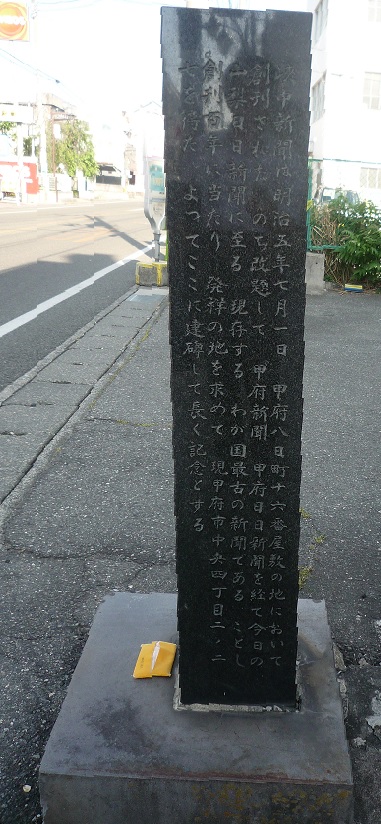 峡中新聞は明治五年七月一日 甲府八日町十六番屋敷の地において
創刊された のち改題して 甲府新聞 甲府日日新聞を経て今日の
山梨日日新聞に至る 現存する わが国最古の新聞である ことし
創刊百年に当たり 発祥の地を求めて 現甲府市中央四丁目二ノ二
でを得た よってここに建碑して長く記念とする